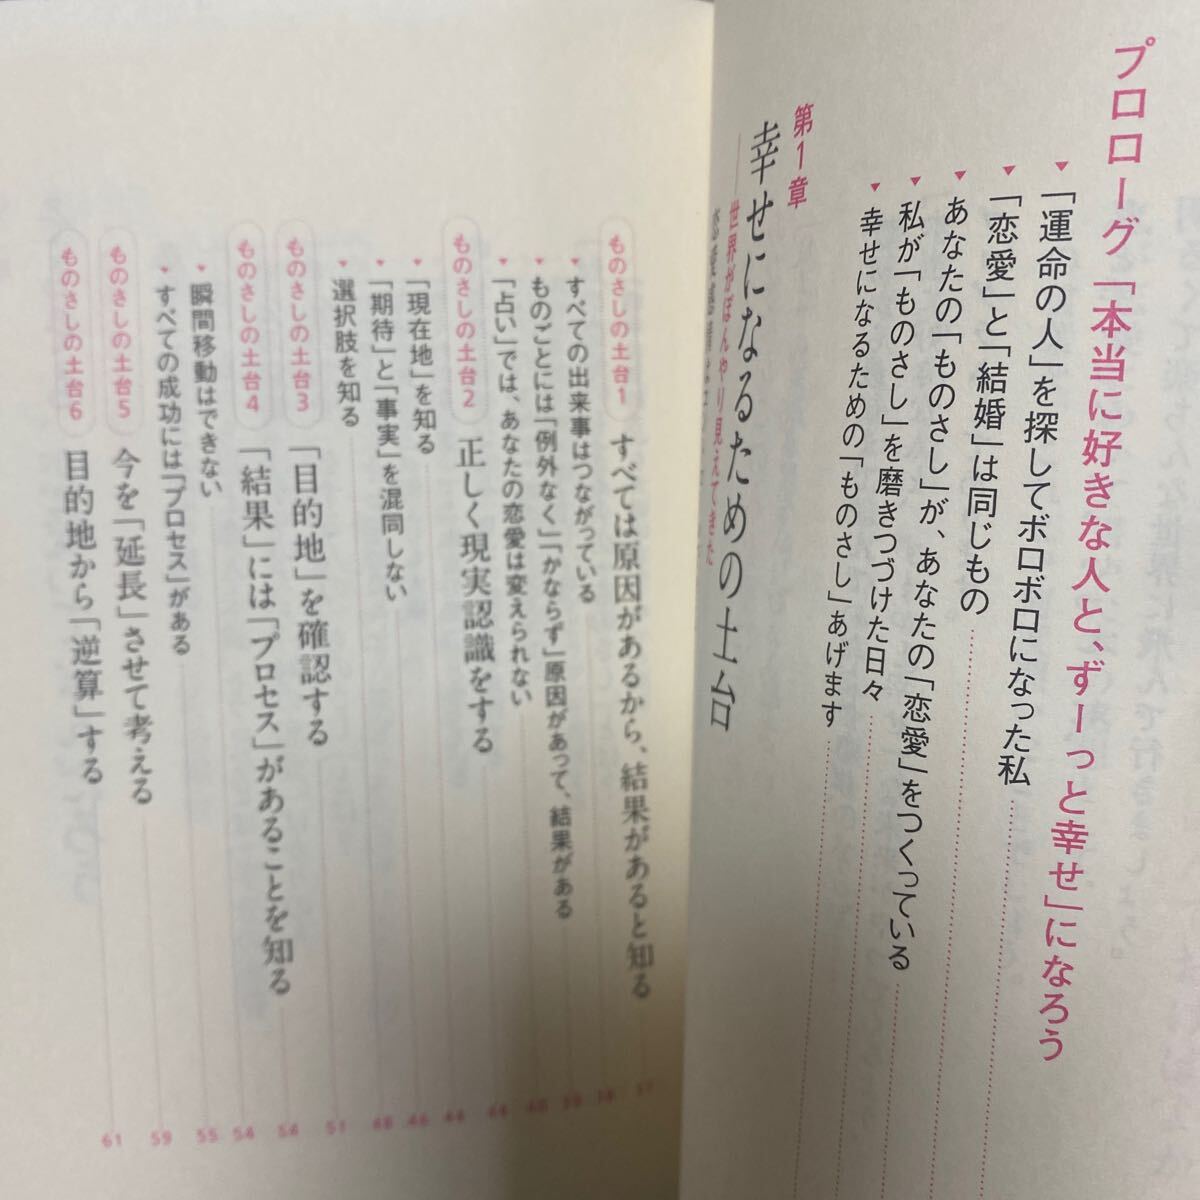 プロローグ「本当に好きな人と、ずーっと幸せ」になろう
▼「運命の人」を探してボロボロになった私
▼「恋愛」と「結婚」は同じもの
▼あなたの「ものさし」が、あなたの「恋愛」をつくっている
▼私が「ものさし」を磨きつづけた日々
▼幸せになるための「ものさし」あげます
第1章
幸せになるための土台
──世界がぼんやり見えてきた
ものさしの土台1 すべては原因があるから、結果があると知る
▼すべての出来事はつながっている
▼ものごとには「例外なく」「かならず」原因があって、結果がある
▼「占い」では、あなたの恋愛は変えられない
ものさしの土台2 正しく現実認識をする 44
▼「現在地」を知る 46
▼「期待」と「事実」を混同しない 48
▼選択肢を知る 51
ものさしの土台3 「目的地」を確認する 54
ものさしの土台4 「結果」には「プロセス」があることを知る 54
▼瞬間移動はできない 55
▼すべての成功には「プロセス」がある
ものさしの土台5 今を「延長」させて考える 59
ものさしの土台6 目的地から「逆算」する 61